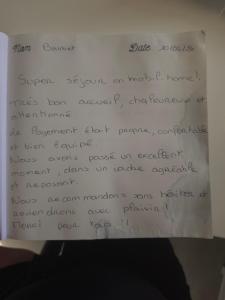 Nom Bournet Date 30/06/25
Super séjour en mobil-home !
Très bon accueil, chaleureux et
attentionné.
Le logement était propre, confortable
et bien équipé.
Nous avons passé un excellent
moment, dans un cadre agréable
et reposant.
Nous recommandons sans hésiter et
reviendrons avec plaisir !
Merci pour tout !!